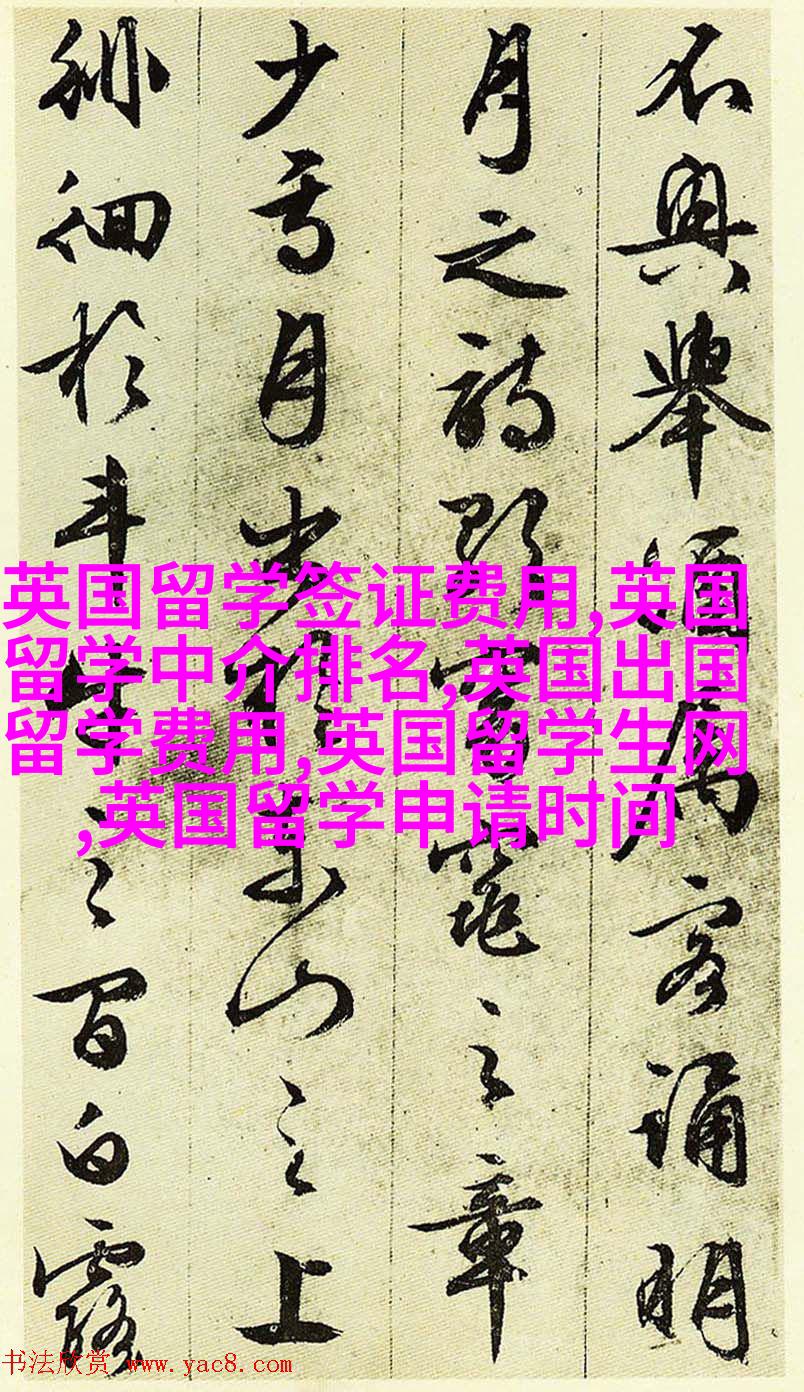 不興舉酒屬客誦明
月之詩歌窈窕之章
少焉月出於東山之上
徘徊於斗牛之間白露
英国留学签证费用,英国
留学中介排名,英国出国
留学费用,英国留学生网
,英国留学申请时间
书法欣赏 www.yac8.com